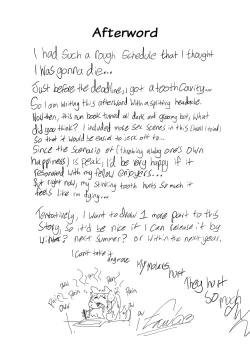 Afterword
I had such a rough schedule that I thought
I was gonna die...
Just before the deadline, I got a tooth cavity...
So I am writing this afterword with a splitting headache.
Now then, this fun book turned all dark and gloomy, but, what
did you think? I included more sex scenes in this (well I tried)
so that it would be easier to jerk off to...
Since the scenario of (throwing away one's own
happiness) is peak, I'd be very happy if it
resonated with my fellow enjoyers...
But right now, my stinking tooth hurts so much it
feels like I'm dying...
Tentatively, I want to draw 1 more part to this
story, so it'd be nice if I can release it by
winter? next summer? or within the next year.
I can't take it
anymore
My molars
hurt
They hurt
so much
ow
pain
pain
pain
ow
ow